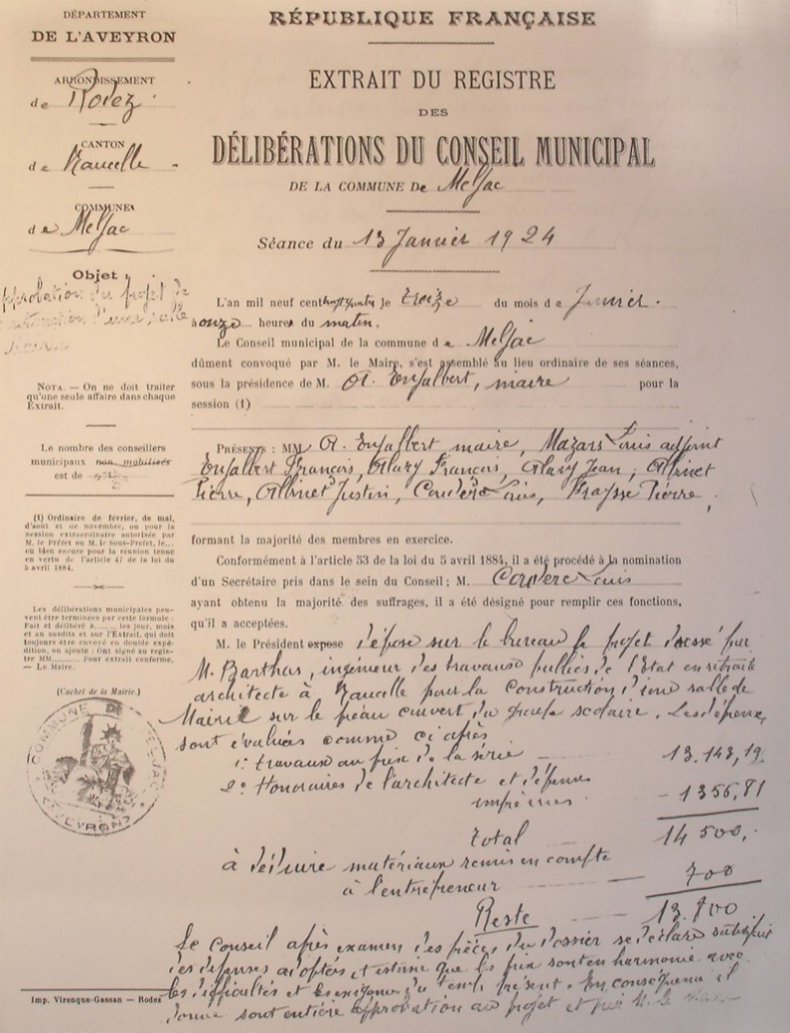 DÉPARTEMENT
DE L'AVEYRON
ARRONDISSEMENT
de Rodez
CANTON
de Naucelle
COMMUNE
de Meljac
Objet
approbation du projet de
construction d'une salle
Mairie
NOTA. — On ne doit traiter
qu'une seule affaire dans chaque
Extrait.
Le nombre des conseillers
municipaux non mobilisés
est de
(1) Ordinaire de février, de mai,
d'août et de novembre, ou pour la
Session extraordinaire autorisée par
M. le Préfet ou M. le Sous-Préfet, le...
ou bien encore pour la réunion tenue
en vertu de l'article 47 de la loi du
5 avril 1884.
Les délibérations municipales peu-
vent être terminées par cette formule :
Fait et délibéré à........ les jour, mois
et an susdits et sur l'Extrait, qui doit
toujours être envoyé en double expé-
dition, on ajoute : Ont signé au regis-
tre MM......... Pour extrait conforme,
— Le Maire.
(Cachet de la Mairie.)
COMMUNE DE MELJAC
AVEYRON
Imp. Virenque-Gassan — Rodez
RÉPUBLIQUE FRANÇAISE
EXTRAIT DU REGISTRE
DES
DÉLIBÉRATIONS DU CONSEIL MUNICIPAL
DE LA COMMUNE De Meljac
Séance du 13 Janvier 1924
L'an mil neuf cent vingt quatre le treize du mois de Janvier.
à onze heures du matin.
Le Conseil municipal de la commune de Meljac
dûment convoqué par M. le Maire, s'est assemblé au lieu ordinaire de ses séances,
sous la présidence de M. A. Enjalbert, maire pour la
session (1)
PRÉSENTS : MM A. Enjalbert maire, Mazars Louis adjoint
Enjalbert François, Alary François, Alary Jean, Albinet
Pierre, Albinet Justin, Couderc Louis, Fraysse Pierre,
formant la majorité des membres en exercice.
Conformément à l'article 53 de la loi du 5 avril 1884, il a été procédé à la nomination
d'un Secrétaire pris dans le sein du Conseil; M. Couderc Louis
ayant obtenu la majorité des suffrages, il a été désigné pour remplir ces fonctions,
qu'il a acceptées.
M. le Président expose dépose sur le bureau le projet dressé par
M. Barthas, ingénieur des travaux publics de l'Etat en retraite
architecte à Naucelle pour la construction d'une salle de
Mairie sur le préau couvert du groupe scolaire. Les dépenses
sont évaluées comme ci après
1º travaux au prix de la série 13.143,19
2º Honoraires de l'architecte et dépenses
imprévues 1356,81
Total 14 500,
à déduire matériaux remis en compte
à l'entrepreneur 700
Reste 13.800
Le Conseil après examen des pièces du dossier se déclare satisfait
des dépenses adoptés et estime que les prix sont en harmonie avec
les difficultés et les exigences du temps présent. En conséquence il
donne sont entière approbation au projet et prie M. le